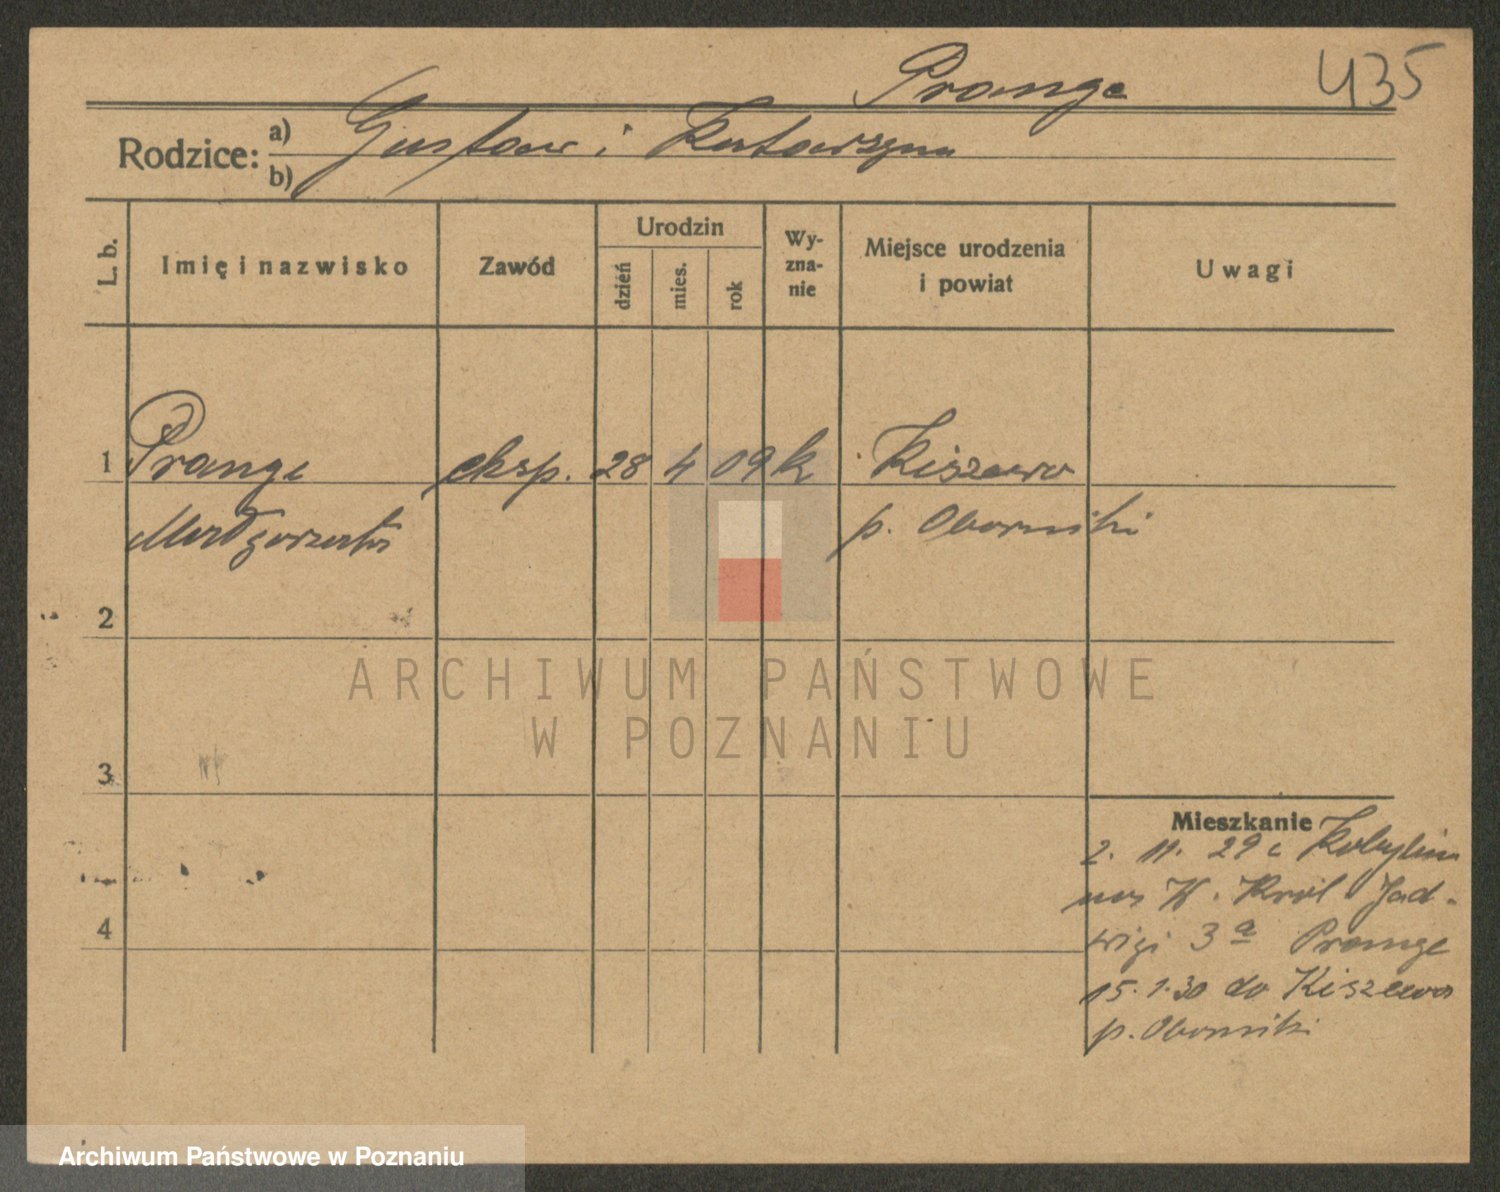 Prange
435
Rodzice: a) Gustaw i Katarzyna
b)
L. b.
Imię i nazwisko
Zawód
Urodzin
dzień
mies.
rok
Wy-
zna-
nie
Miejsce urodzenia
i powiat
Uwagi
1 Prange eksp. 28 4 09 k Kiszewo
Małgorzata p. Oborniki
2
3
4
Mieszkanie
2. 11. 29 z Kobylina
W. Król Jad-
wigi 3a Prange
15.1.30 do Kiszewa
p. Oborniki
ARCHIWUM PAŃSTWOWE
W POZNANIU
Archiwum Państwowe w Poznaniu